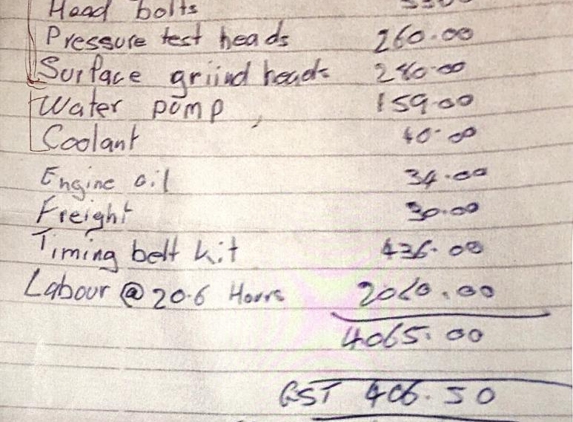 Head bolts
Pressure test heads 260.00
Surface griind heads 240.00
Water pump 159.00
Coolant 40.00
Engine oil 34.00
Freight 30.00
Timing belt kit 436.00
Labour @ 20.6 Hours 2060.00
4065.00
GST 406.50